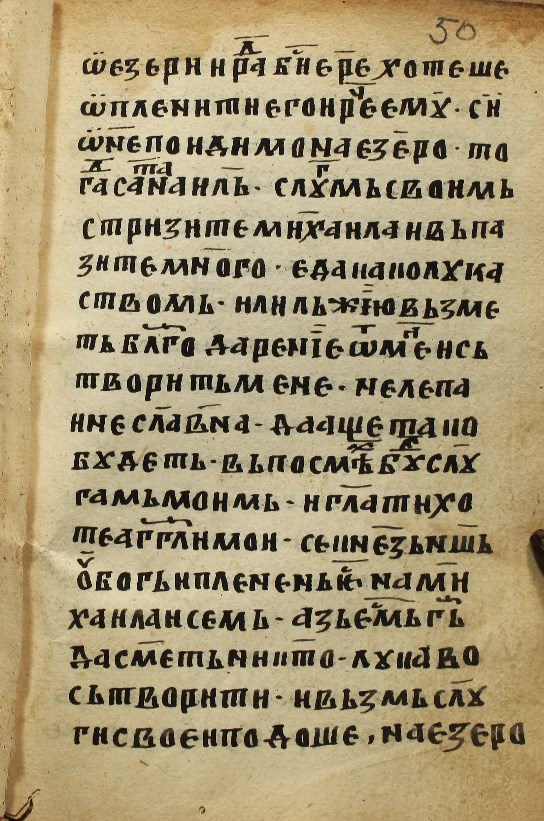 50
ѿезери и раⷣ бꙑⷭ҇ и ере хотеше
ѿпленити его и рⷱ҇е емꙋ · сїи
ѿнепоидимо на езеро · то
гаⷣ сатанаиль · слꙋгⷨмь своимь
стризите михаила и вьпа
зите много · еда напо лꙋка
ствомь · или льжїю вьзме
ть бл҃годарениѥ ѿ мене и сь
творить мене · не лепа
и не славна · да аще тако
бꙋдеть · вь посмѣⷯ бꙋⷣ слꙋ
гамь моимь · и гл҃ати хо
те аг҃гли мои · се и не зьнашь
ꙋбогь и плененьꙑⷭ҇ нами
хаила и семь · азь есмь г҃ь
да сметь чи и что · лꙋкаво
сьтворити · и вьзмь слꙋ
ги свое и подоше , на езеро